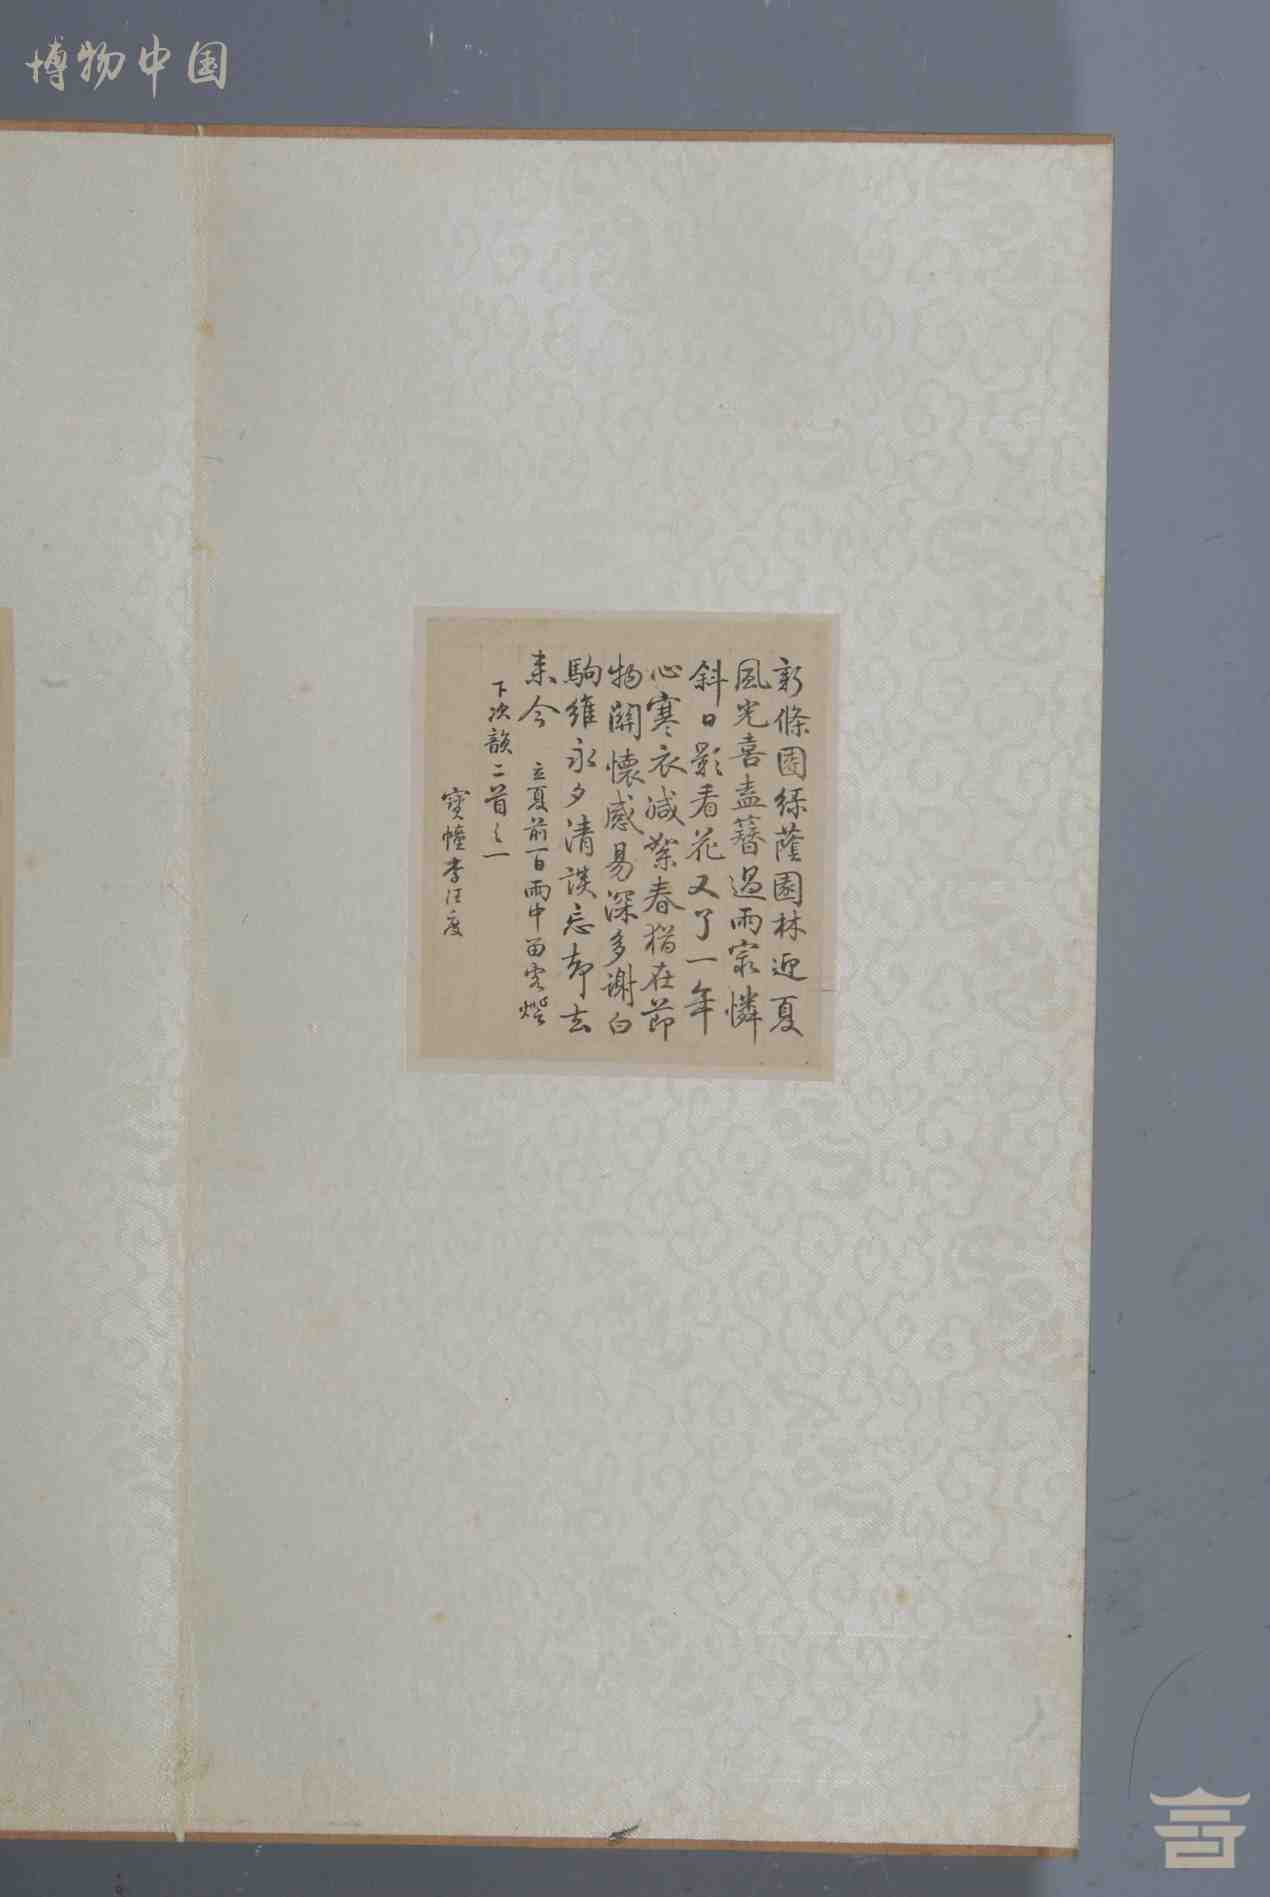 博物中国
新條團綠蔭園林迎夏
風光喜盍簪過雨冣憐
斜日影看花又了一年
心寒衣減絮春猶在節
物關懷感易深多謝白
駒維永夕清談忘却去
來今 立夏前一日雨中留客燈
下次韻二首之一
寶幢李汪度